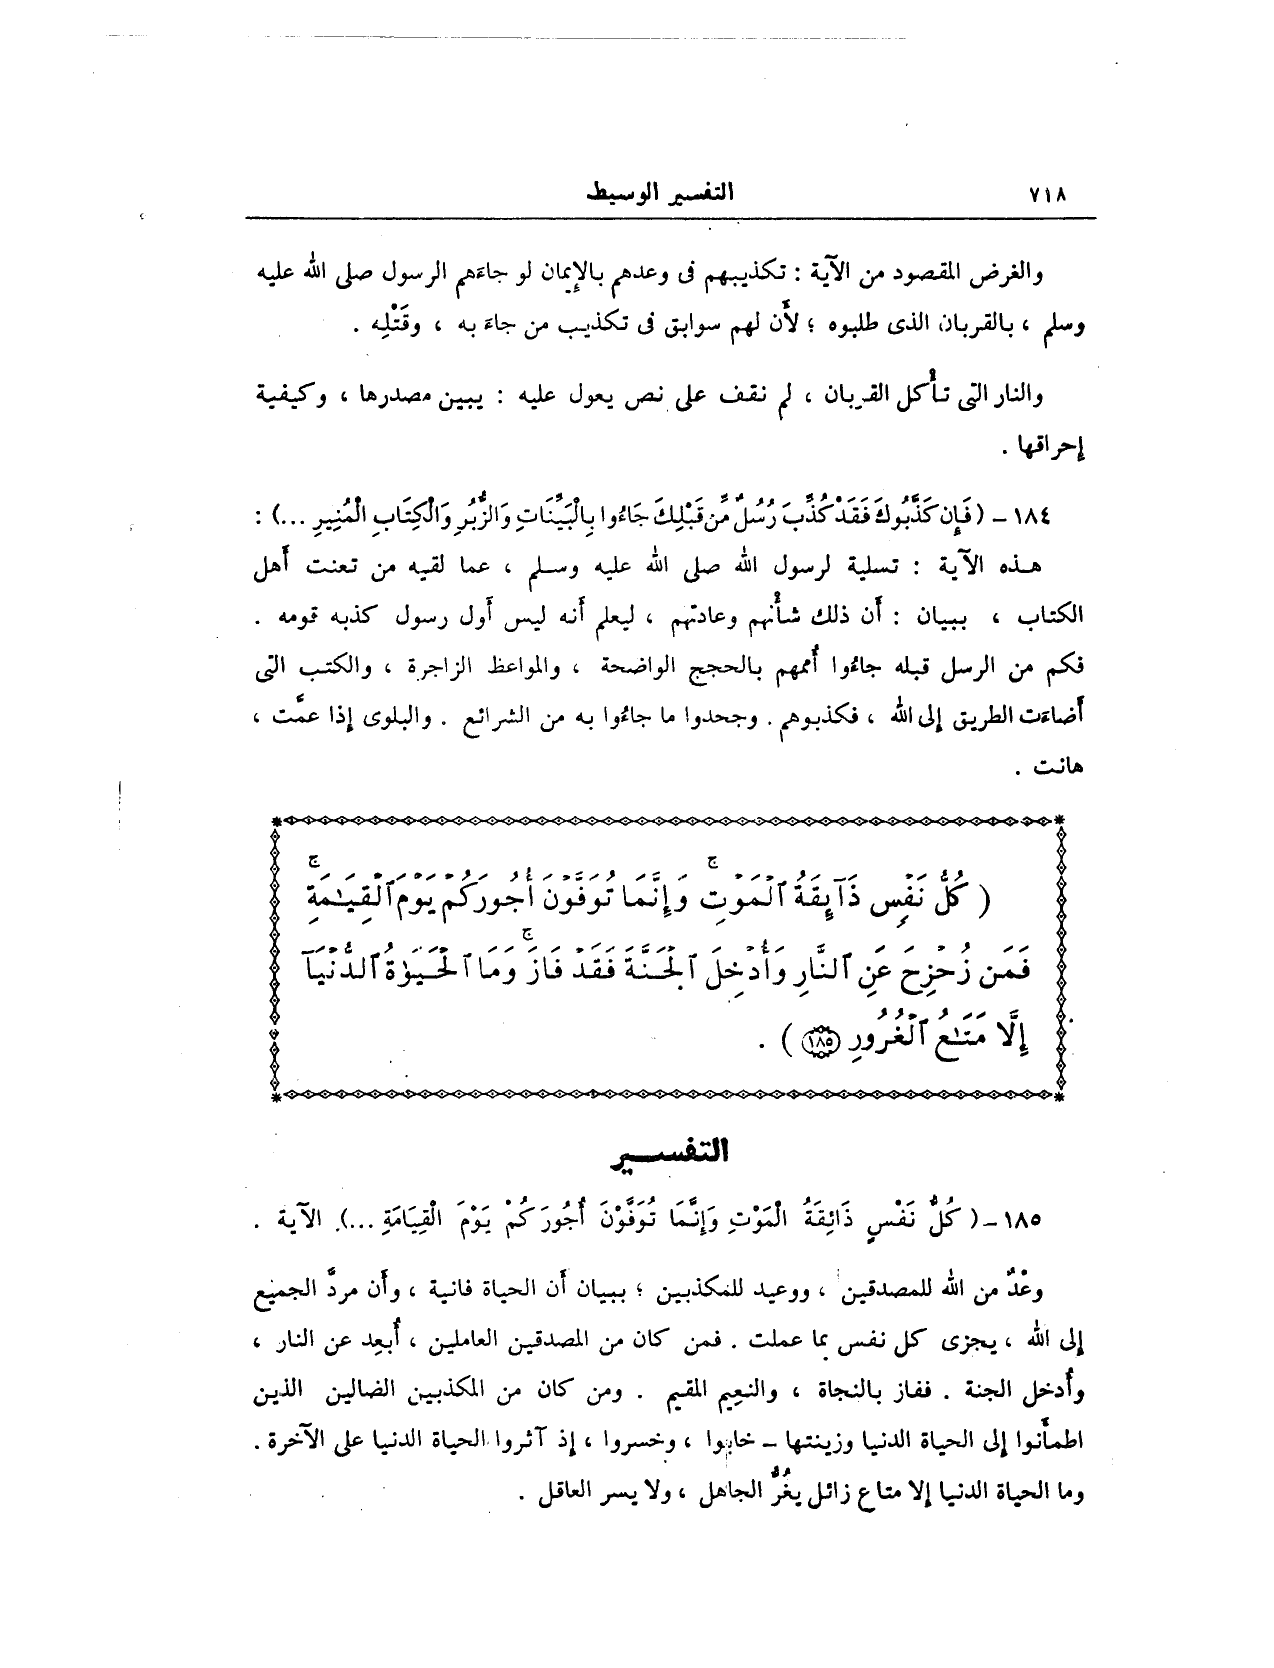 ٧١٨ التفسير الوسيط
والغرض المقصود من الآية : تكذيبهم فى وعدهم بالإيمان لو جاءهم الرسول صلى الله عليه
وسلم ، بالقربان الذى طلبوه ؛ لأن لهم سوابق فى تكذيب من جاءَ به ، وقَتْلِه .
والنار التى تأْكل القربان ، لم نقف على نص يعول عليه : يبين مصدرها ، وكيفية
إحراقها .
١٨٤ - ( فَإِن كَذَّبُوكَ فَقَدْ كُذِّبَ رُسُلٌ مِّن قَبْلِكَ جَاءُوا بِالْبَيِّنَاتِ وَالزُّبُرِ وَالْكِتَابِ الْمُنِيرِ ...) :
هذه الآية : تسلية لرسول الله صلى الله عليه وسلم ، عما لقيه من تعنت أهل
الكتاب ، ببيان : أن ذلك شأْنهم وعادتهم ، ليعلم أنه ليس أول رسول كذبه قومه .
فكم من الرسل قبله جاءُوا أُممهم بالحجج الواضحة ، والمواعظ الزاجرة ، والكتب التى
أضاءَت الطريق إلى الله ، فكذبوهم . وجحدوا ما جاءُوا به من الشرائع . والبلوى إذا عمَّت ،
هانت .
( كُلُّ نَفْسٍ ذَآئِقَةُ ٱلْمَوْتِ ۚ وَإِنَّمَا تُوَفَّوْنَ أُجُورَكُمْ يَوْمَ ٱلْقِيَـٰمَةِ ۚ
فَمَن زُحْزِحَ عَنِ ٱلنَّارِ وَأُدْخِلَ ٱلْجَنَّةَ فَقَدْ فَازَ ۚ وَمَا ٱلْحَيَوٰةُ ٱلدُّنْيَآ
إِلَّا مَتَـٰعُ ٱلْغُرُورِ (١٨٥) ) .
التفسير
١٨٥ - ( كُلُّ نَفْسٍ ذَائِقَةُ الْمَوْتِ وَإِنَّمَا تُوَفَّوْنَ أُجُورَكُمْ يَوْمَ الْقِيَامَةِ ...). الآية .
وعْدٌ من الله للمصدقين ، ووعيد للمكذبين ؛ ببيان أن الحياة فانية ، وأن مردَّ الجميع
إلى الله ، يجزى كل نفس بما عملت . فمن كان من المصدقين العاملين ، أُبعِد عن النار ،
وأُدخل الجنة . ففاز بالنجاة ، والنعيم المقيم . ومن كان من المكذبين الضالين الذين
اطمأَنوا إلى الحياة الدنيا وزينتها - خابوا ، وخسروا ، إذ آثروا الحياة الدنيا على الآخرة .
وما الحياة الدنيا إلا متاع زائل يغُرُّ الجاهل ، ولا يسر العاقل .